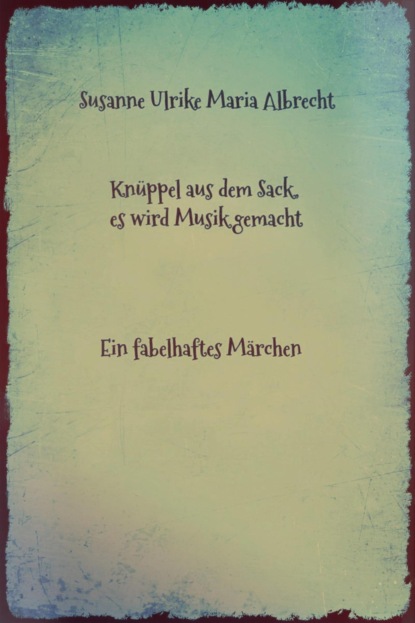 Susanne Ulrike Maria Albrecht
Knüppel aus dem Sack,
es wird Musik gemacht
Ein fabelhaftes Märchen